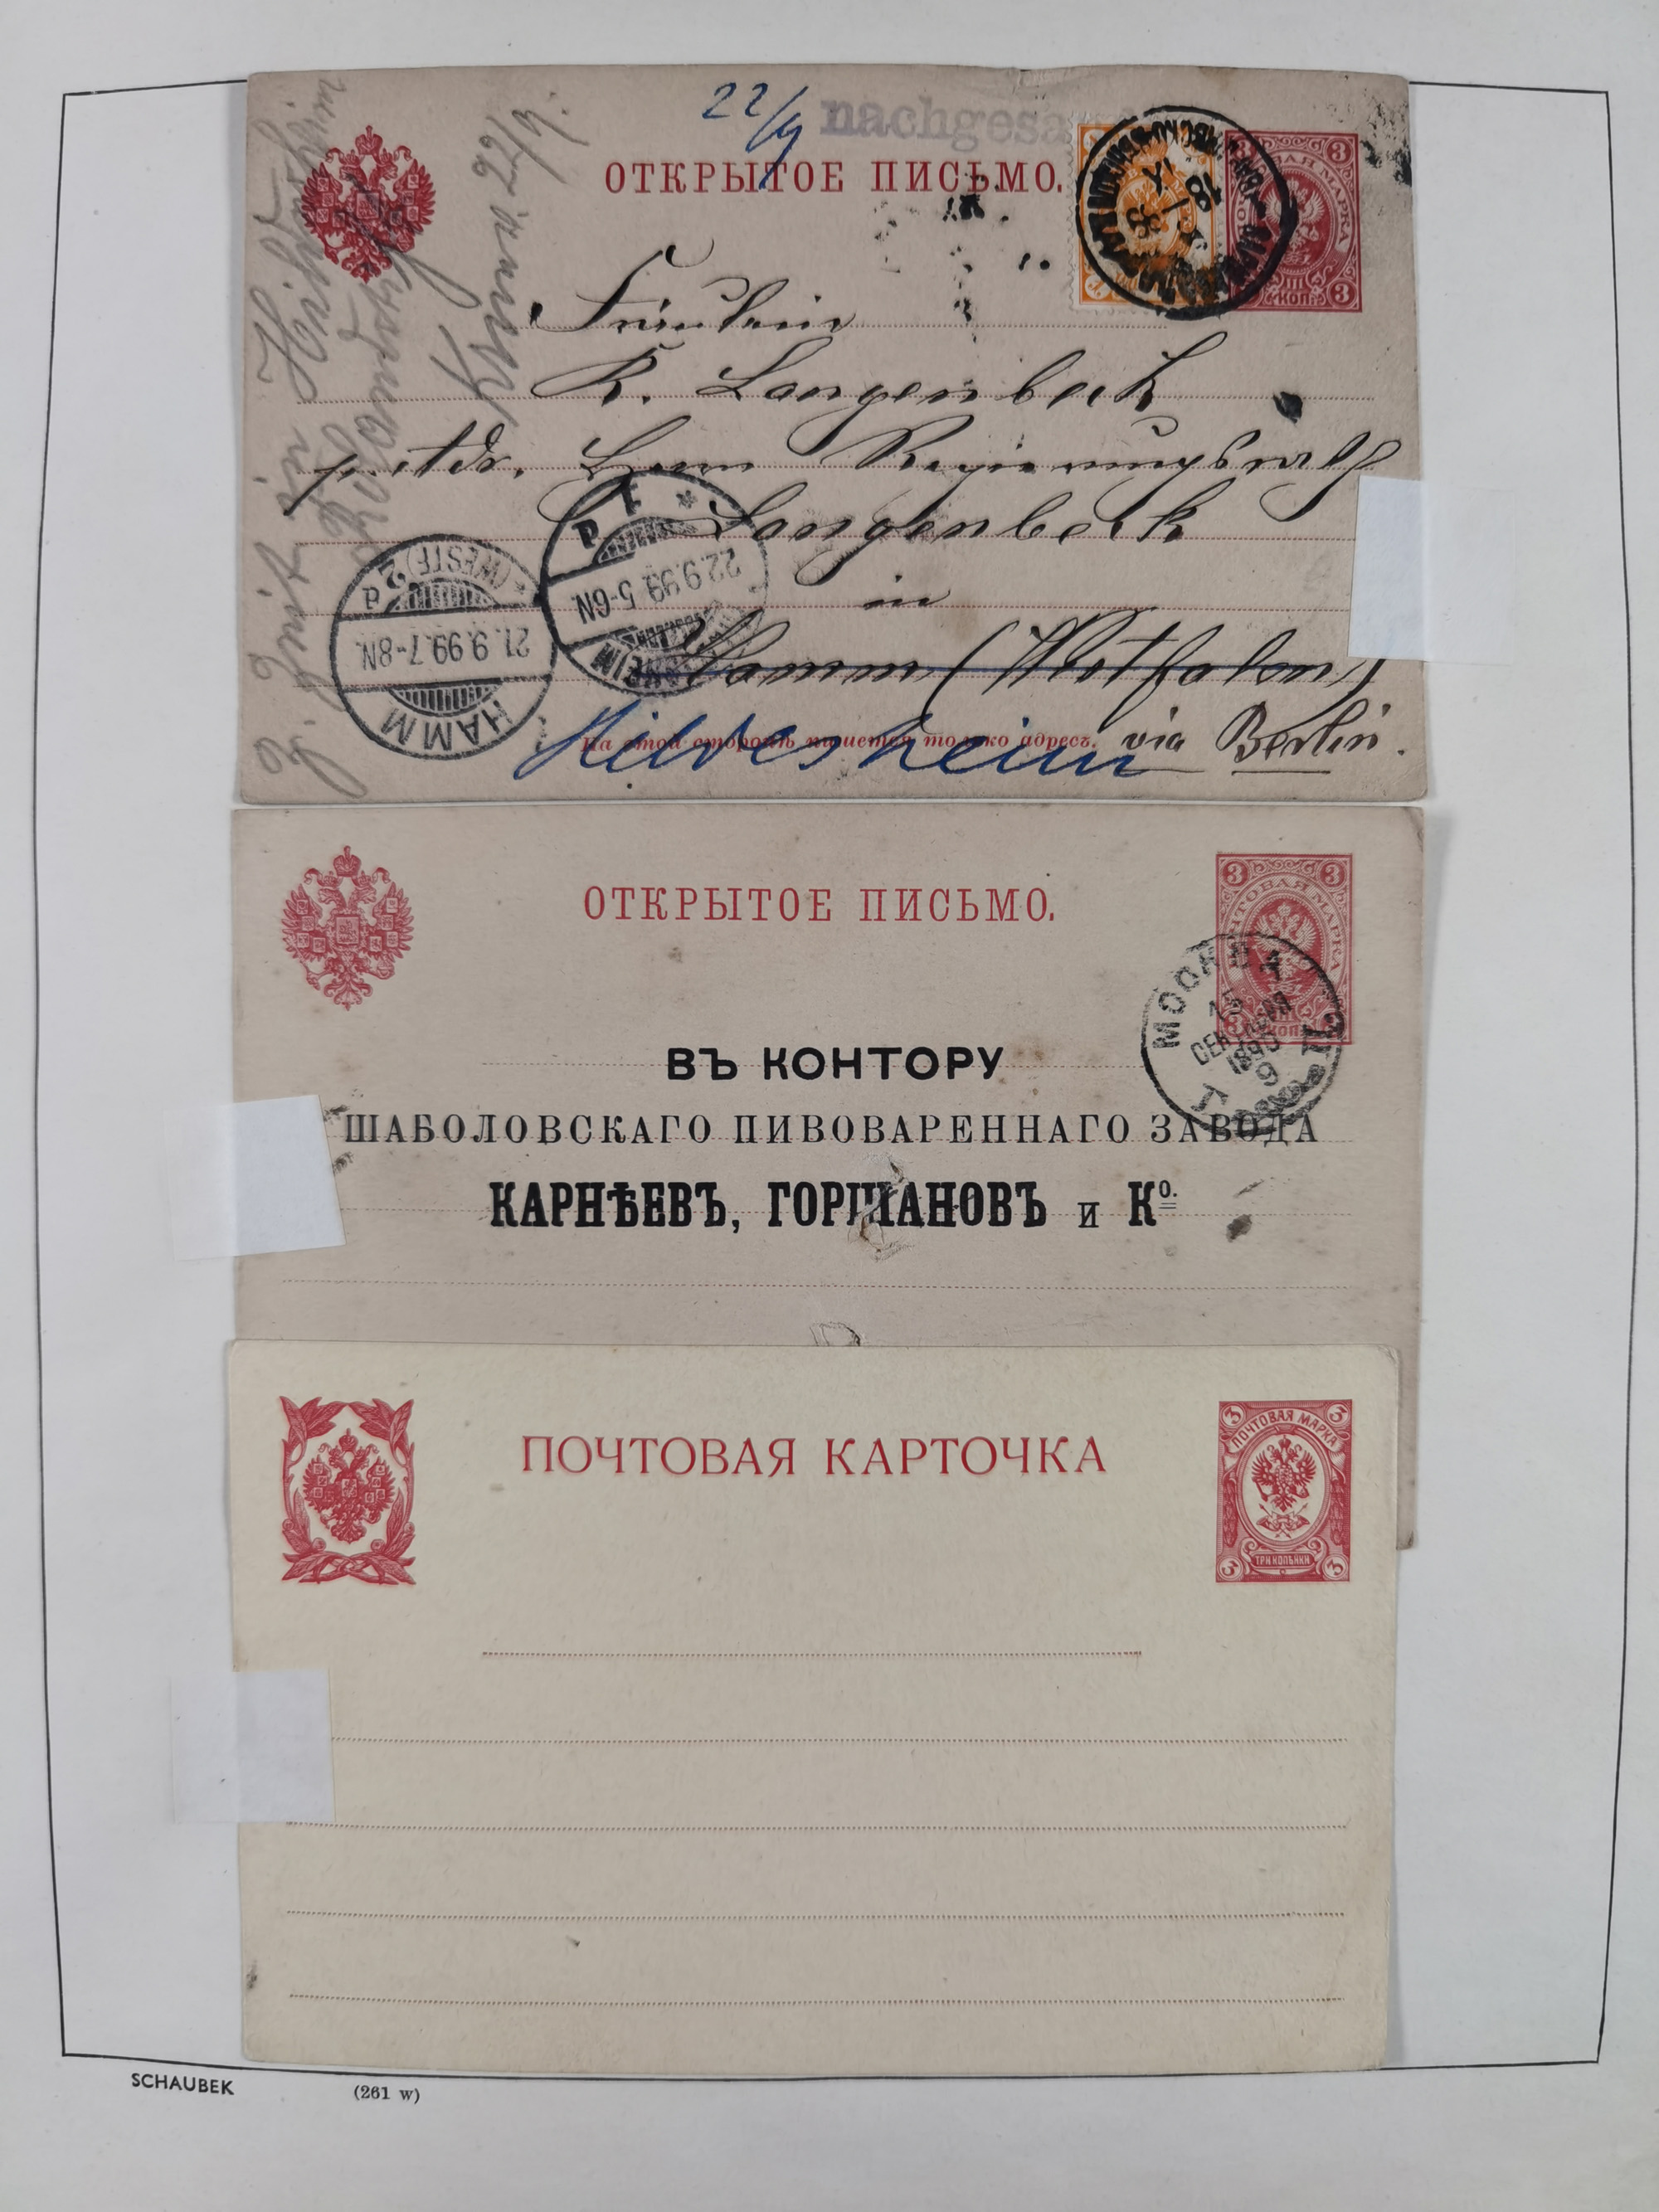 22/9
nachgesa
ОТКРЫТОЕ ПИСЬМО.
3
ПОЧТОВАЯ МАРКА
3
III
КОП.
18
IX
Fräulein
K. Langenbeck
p. Adr. Herrn Regierungsrath
Langenbeck
in
Hamm (Westfalen)
На этой сторонѣ пишется только адресъ.
via Berlin.
Hildesheim
z. Zeit in Hildesheim
Hamm 22/9.
HAMM
21.9.99.7-8N.
(WESTF) 2
d
22.9.99.5-6N.
ОТКРЫТОЕ ПИСЬМО.
3 3
ПОЧТОВАЯ МАРКА
III
КОП.
МОСКВА
15
1893
9
ВЪ КОНТОРУ
ШАБОЛОВСКАГО ПИВОВАРЕННАГО ЗАВОДА
КАРНѢЕВЪ, ГОРШАНОВЪ и Ко.
ПОЧТОВАЯ КАРТОЧКА
3 3
ПОЧТОВАЯ МАРКА
ТРИ КОПѢЙКИ
3 3
SCHAUBEK (261 w)